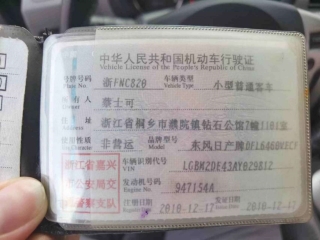 中华人民共和国机动车行驶证
Vehicle License of the People's Republic of China
号牌号码 浙FNC820 车辆类型 小型普通客车
Plate No. Vehicle Type
所有人 蔡士可
住址 浙江省桐乡市濮院镇钻石公馆7幢1101室
使用性质 非营运 品牌型号 东风日产牌
Use Character Model
浙江省嘉兴 车辆识别代号
VIN LGBM2DE43AY029812
市公安局交 发动机号码 947154A
Engine No.
通警察支队 注册日期 2010-12-17 发证日期 2010-12-17
Register Date Issue Date